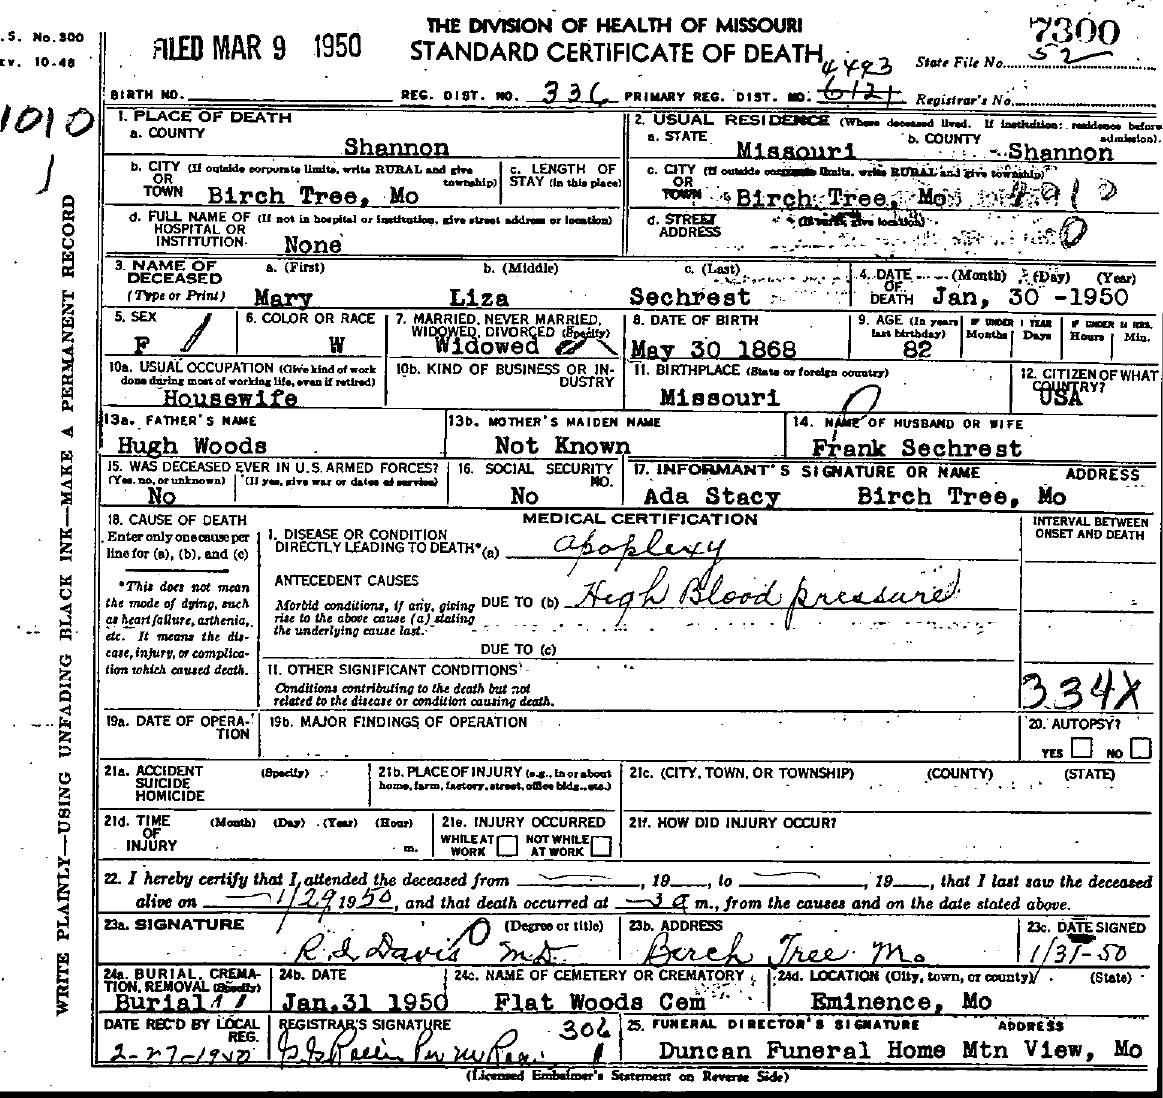 THE DIVISION OF HEALTH OF MISSOURI
STANDARD CERTIFICATE OF DEATH
.S. No. 300
EV. 10-48
FILED MAR 9 1950
7300
52
State File No.
4493
BIRTH NO. REG. DIST. NO. 336 PRIMARY REG. DIST. NO. 6121 Registrar's No.
1010
1
WRITE PLAINLY—USING UNFADING BLACK INK—MAKE A PERMANENT RECORD
1. PLACE OF DEATH
a. COUNTY
Shannon
2. USUAL RESIDENCE (Where deceased lived. If institution: residence before admission).
a. STATE Missouri b. COUNTY Shannon
b. CITY (If outside corporate limits, write RURAL and give township)
OR
TOWN Birch Tree, Mo
c. LENGTH OF
STAY (in this place)
c. CITY (If outside corporate limits, write RURAL and give township)
OR
TOWN Birch Tree, Mo
d. FULL NAME OF (If not in hospital or institution, give street address or location)
HOSPITAL OR
INSTITUTION None
d. STREET (If rural, give location)
ADDRESS
0
3. NAME OF
DECEASED
(Type or Print)
a. (First) b. (Middle) c. (Last)
Mary Liza Sechrest
4. DATE (Month) (Day) (Year)
OF
DEATH Jan, 30 -1950
5. SEX
F
6. COLOR OR RACE
W
7. MARRIED, NEVER MARRIED,
WIDOWED, DIVORCED (Specify)
Widowed
8. DATE OF BIRTH
May 30 1868
9. AGE (In years last birthday)
82
IF UNDER 1 YEAR
Months Days
IF UNDER 24 HRS.
Hours Min.
10a. USUAL OCCUPATION (Give kind of work
done during most of working life, even if retired)
Housewife
10b. KIND OF BUSINESS OR IN-
DUSTRY
11. BIRTHPLACE (State or foreign country)
Missouri
12. CITIZEN OF WHAT
COUNTRY?
USA
13a. FATHER'S NAME
Hugh Woods
13b. MOTHER'S MAIDEN NAME
Not Known
14. NAME OF HUSBAND OR WIFE
Frank Sechrest
15. WAS DECEASED EVER IN U.S. ARMED FORCES?
(Yes, no, or unknown) (If yes, give war or dates of service)
No
16. SOCIAL SECURITY
NO.
No
17. INFORMANT'S SIGNATURE OR NAME ADDRESS
Ada Stacy Birch Tree, Mo
18. CAUSE OF DEATH
Enter only one cause per
line for (a), (b), and (c)
*This does not mean
the mode of dying, such
as heart failure, asthenia,
etc. It means the dis-
ease, injury, or complica-
tion which caused death.
MEDICAL CERTIFICATION
I. DISEASE OR CONDITION
DIRECTLY LEADING TO DEATH*(a) apoplexy
ANTECEDENT CAUSES
Morbid conditions, if any, giving
rise to the above cause (a) stating
the underlying cause last.
DUE TO (b) High Blood pressure
DUE TO (c)
II. OTHER SIGNIFICANT CONDITIONS
Conditions contributing to the death but not
related to the disease or condition causing death.
INTERVAL BETWEEN
ONSET AND DEATH
334X
19a. DATE OF OPERA-
TION
19b. MAJOR FINDINGS OF OPERATION
20. AUTOPSY?
YES NO
21a. ACCIDENT (Specify)
SUICIDE
HOMICIDE
21b. PLACE OF INJURY (e.g., in or about
home, farm, factory, street, office bldg., etc.)
21c. (CITY, TOWN, OR TOWNSHIP) (COUNTY) (STATE)
21d. TIME (Month) (Day) (Year) (Hour)
OF
INJURY m.
21e. INJURY OCCURRED
WHILE AT WORK NOT WHILE AT WORK
21f. HOW DID INJURY OCCUR?
22. I hereby certify that I attended the deceased from , 19 , to , 19 , that I last saw the deceased
alive on 1/29 1950, and that death occurred at 3 a m., from the causes and on the date stated above.
23a. SIGNATURE (Degree or title)
R. L. Davis MD
23b. ADDRESS
Birch Tree Mo
23c. DATE SIGNED
1/31-50
24a. BURIAL, CREMA-
TION, REMOVAL (Specify)
Burial
24b. DATE
Jan.31 1950
24c. NAME OF CEMETERY OR CREMATORY
Flat Woods Cem
24d. LOCATION (City, town, or county) (State)
Eminence, Mo
DATE REC'D BY LOCAL
REG.
2-27-1950
REGISTRAR'S SIGNATURE
306
25. FUNERAL DIRECTOR'S SIGNATURE ADDRESS
Duncan Funeral Home Mtn View, Mo
(Licensed Embalmer's Statement on Reverse Side)